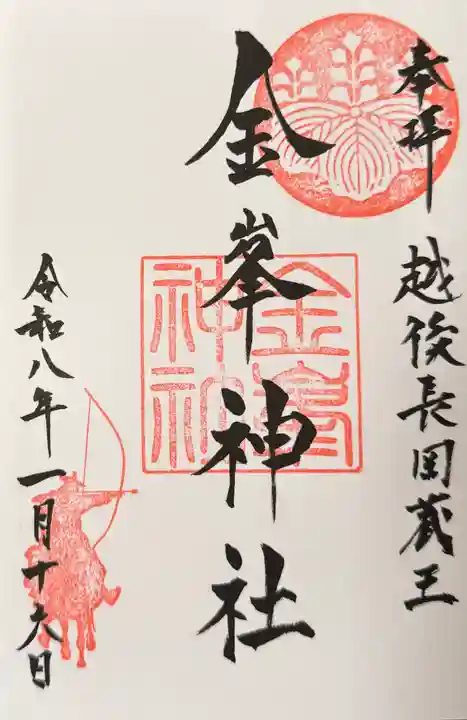 奉拝 越後長岡蔵王
金峯神社
金峯神社
令和八年一月十六日